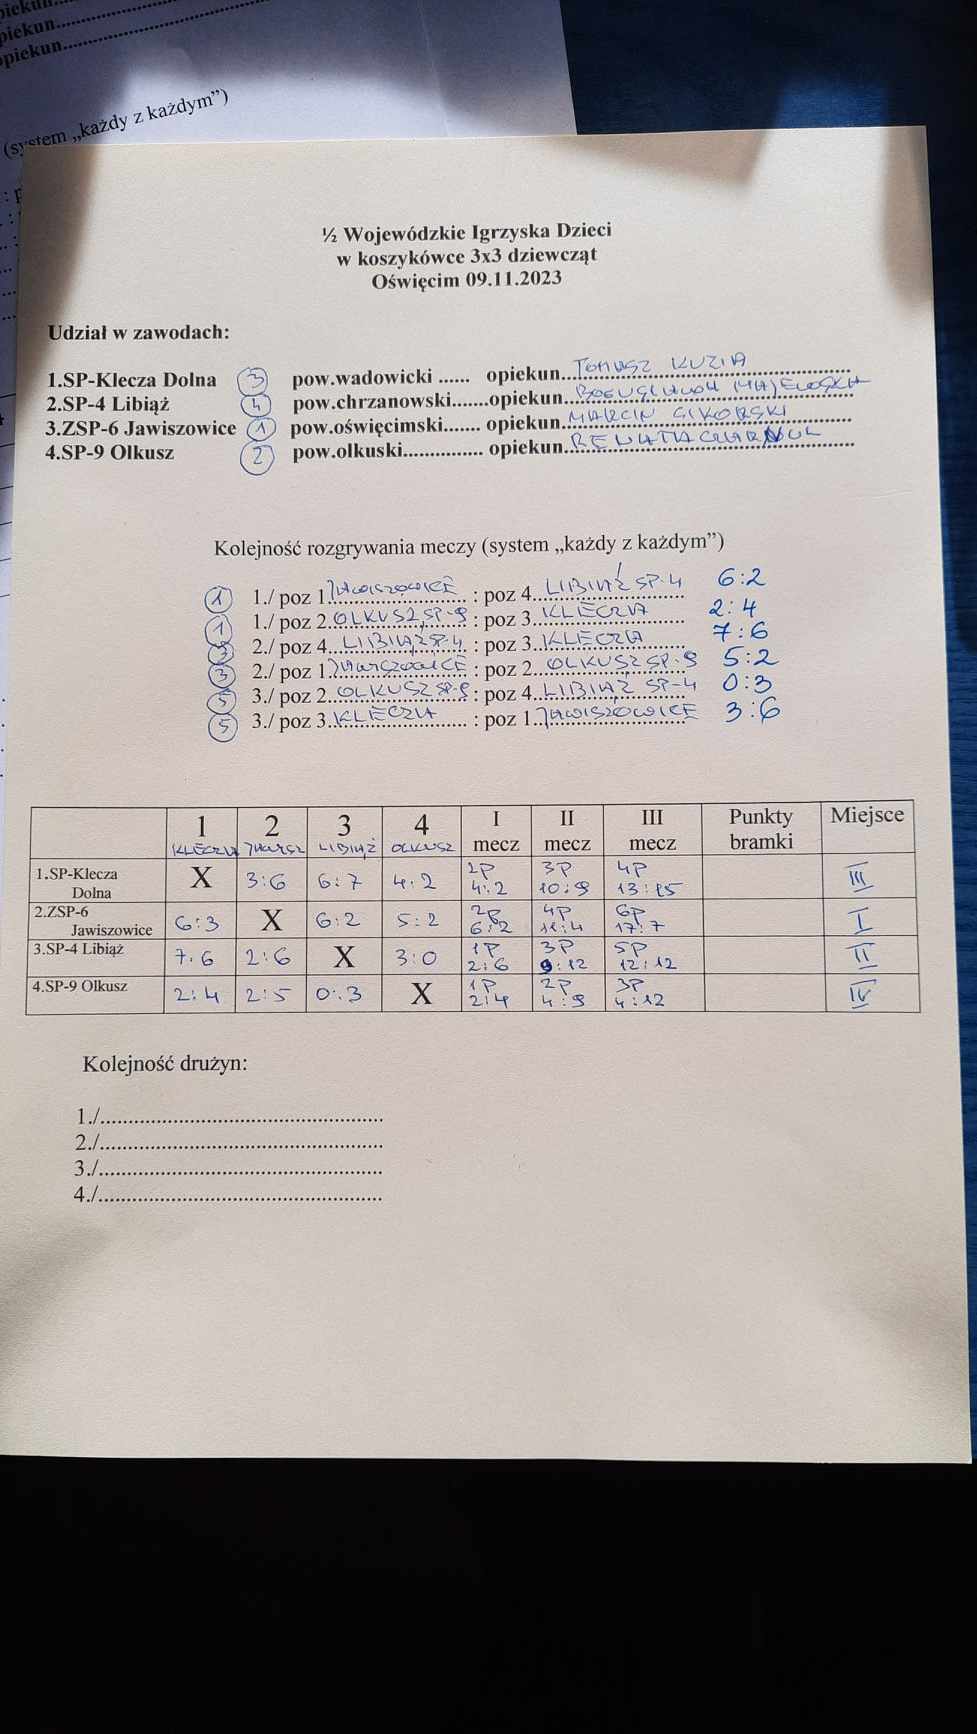 opiekun
opiekun
(system „każdy z każdym”)
½ Wojewódzkie Igrzyska Dzieci
w koszykówce 3x3 dziewcząt
Oświęcim 09.11.2023
Udział w zawodach:
1.SP-Klecza Dolna 3 pow.wadowicki ...... opiekun..TOMASZ KUZIA
2.SP-4 Libiąż 4 pow.chrzanowski.......opiekun..BOGUSŁAWA
3.ZSP-6 Jawiszowice 1 pow.oświęcimski....... opiekun..MARCIN SIKORSKI
4.SP-9 Olkusz 2 pow.olkuski............... opiekun..RENATA CZARNUL
Kolejność rozgrywania meczy (system „każdy z każdym”)
1 1./ poz 1.JAWISZOWICE : poz 4..LIBIĄŻ SP-4 6:2
1 1./ poz 2.OLKUSZ SP-9 : poz 3..KLECZA 2:4
3 2./ poz 4..LIBIĄŻ SP-4 : poz 3..KLECZA 7:6
3 2./ poz 1.JAWISZOWICE : poz 2..OLKUSZ SP-9 5:2
5 3./ poz 2..OLKUSZ SP-9 : poz 4..LIBIĄŻ SP-4 0:3
5 3./ poz 3.KLECZA : poz 1..JAWISZOWICE 3:6
1 2 3 4 I II III Punkty Miejsce
KLECZA JAWISZ LIBIĄŻ OLKUSZ mecz mecz mecz bramki
1.SP-Klecza X 3:6 6:7 4:2 2P 3P 4P III
Dolna 4:2 10:9 13:15
2.ZSP-6 6:3 X 6:2 5:2 2P 4P 6P I
Jawiszowice 6:2 11:4 17:7
3.SP-4 Libiąż 7:6 2:6 X 3:0 1P 3P 5P II
2:6 9:12 12:12
4.SP-9 Olkusz 2:4 2:5 0:3 X 1P 2P 3P IV
2:4 4:9 4:12
Kolejność drużyn:
1./................................................
2./................................................
3./................................................
4./................................................